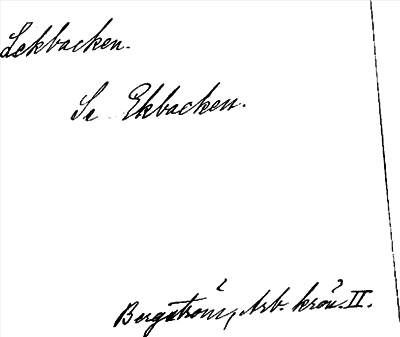 Lekbacken.
Se Ekbacken.
Bergström, Arb. krön. II.